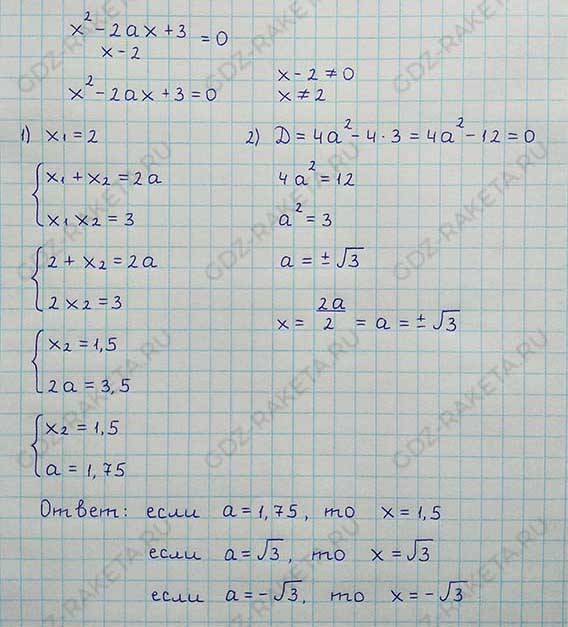 x² - 2ax + 3
x - 2
= 0
x² - 2ax + 3 = 0
x - 2 ≠ 0
x ≠ 2
1) x₁ = 2
{ x₁ + x₂ = 2a
x₁ x₂ = 3
{ 2 + x₂ = 2a
2x₂ = 3
{ x₂ = 1,5
2a = 3,5
{ x₂ = 1,5
a = 1,75
2) D = 4a² - 4 · 3 = 4a² - 12 = 0
4a² = 12
a² = 3
a = ± √3
x = 2a/2 = a = ± √3
Ответ: если a = 1,75, то x = 1,5
если a = √3, то x = √3
если a = -√3, то x = -√3
GDZ-RAKETA.RU